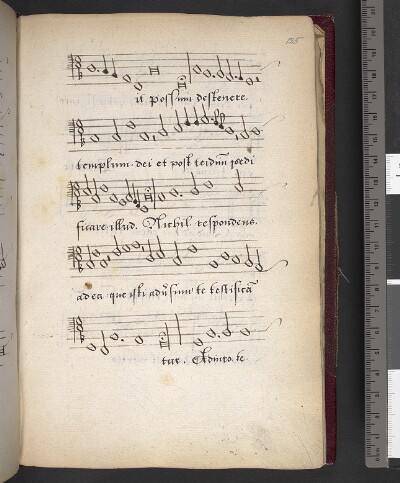 135
it possum destruere
templum dei et post triduum reedi
ficare illud. Nichil respondens
ad ea que isti adversum te testifica
tur. Adiuro te